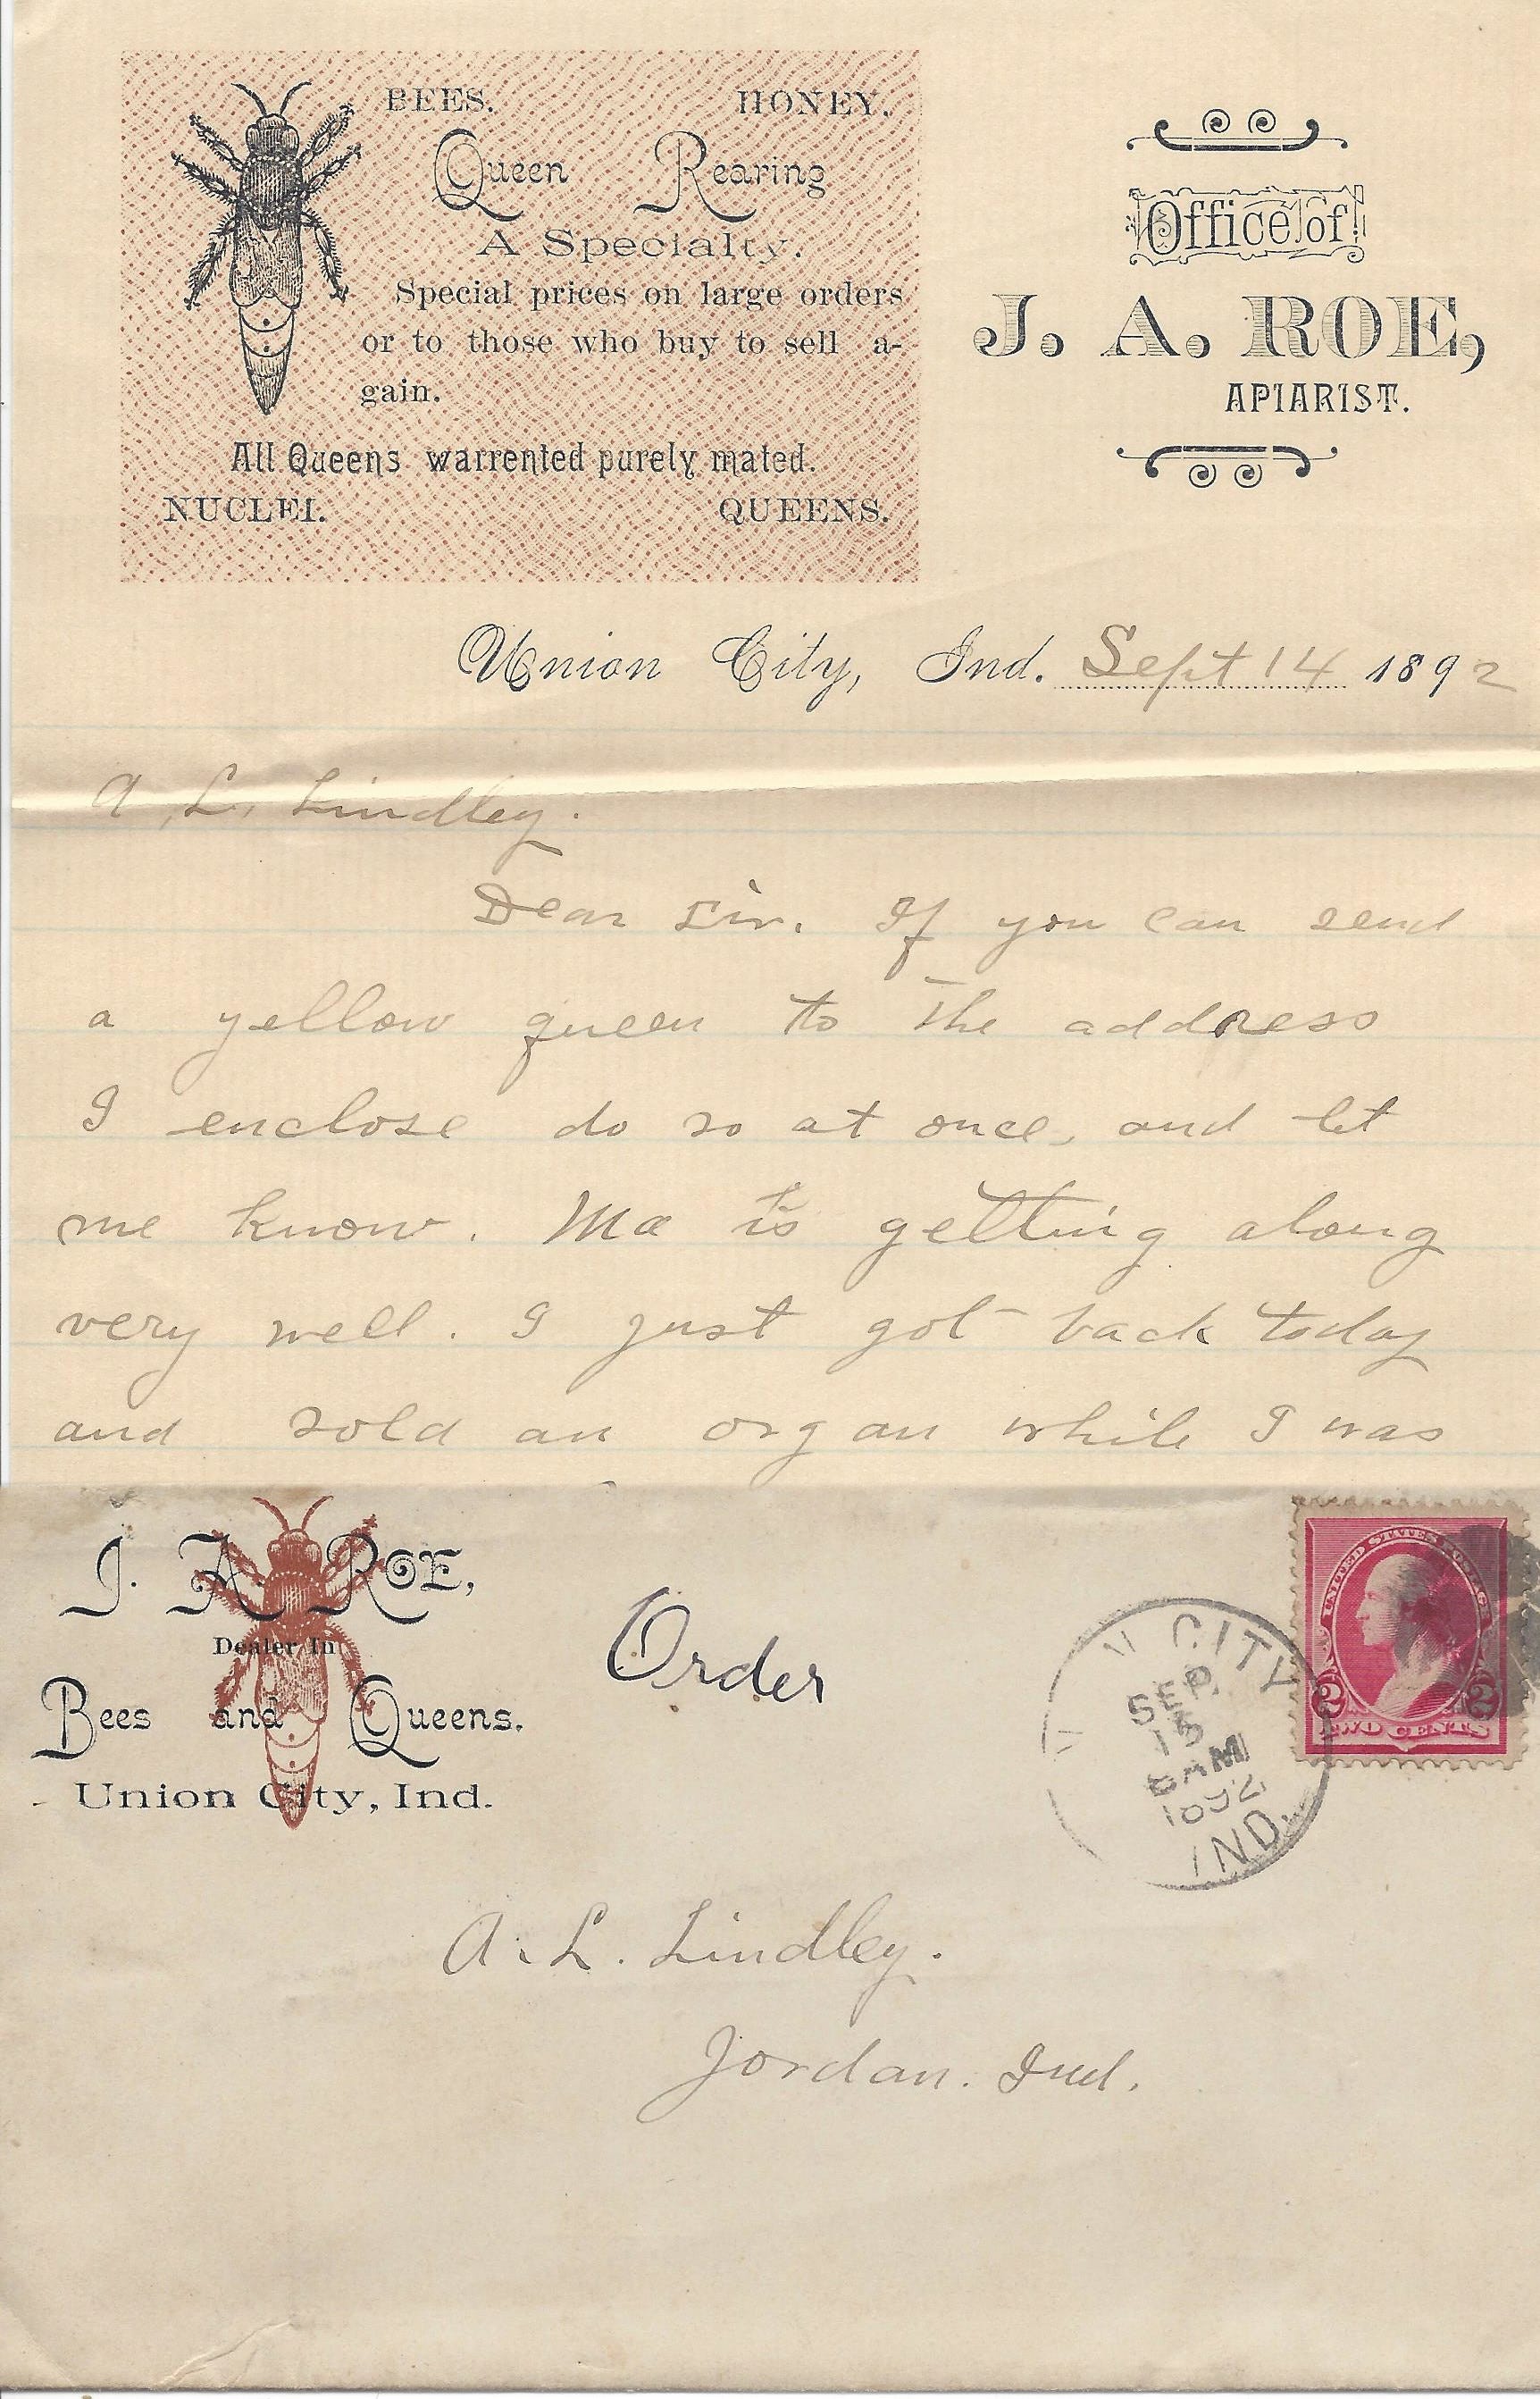 BEES. HONEY.
Queen Rearing
A Specialty.
Special prices on large orders
or to those who buy to sell a-
gain.
All Queens warrented purely mated.
NUCLEI. QUEENS.
Office of
J. A. ROE,
APIARIST.
Union City, Ind. Sept 14 1892
A. L. Lindley.
Dear Sir. If you can send
a yellow queen to the address
I enclose do so at once, and let
me know. Ma is getting along
very well. I just got back today
and sold an organ while I was
J. A. ROE,
Dealer In
Bees and Queens.
Union City, Ind.
Order
UNITED STATES POSTAGE
2 2
TWO CENTS
N CITY
SEP.
15
AM
1892
IND.
A. L. Lindley.
Jordan. Ind.